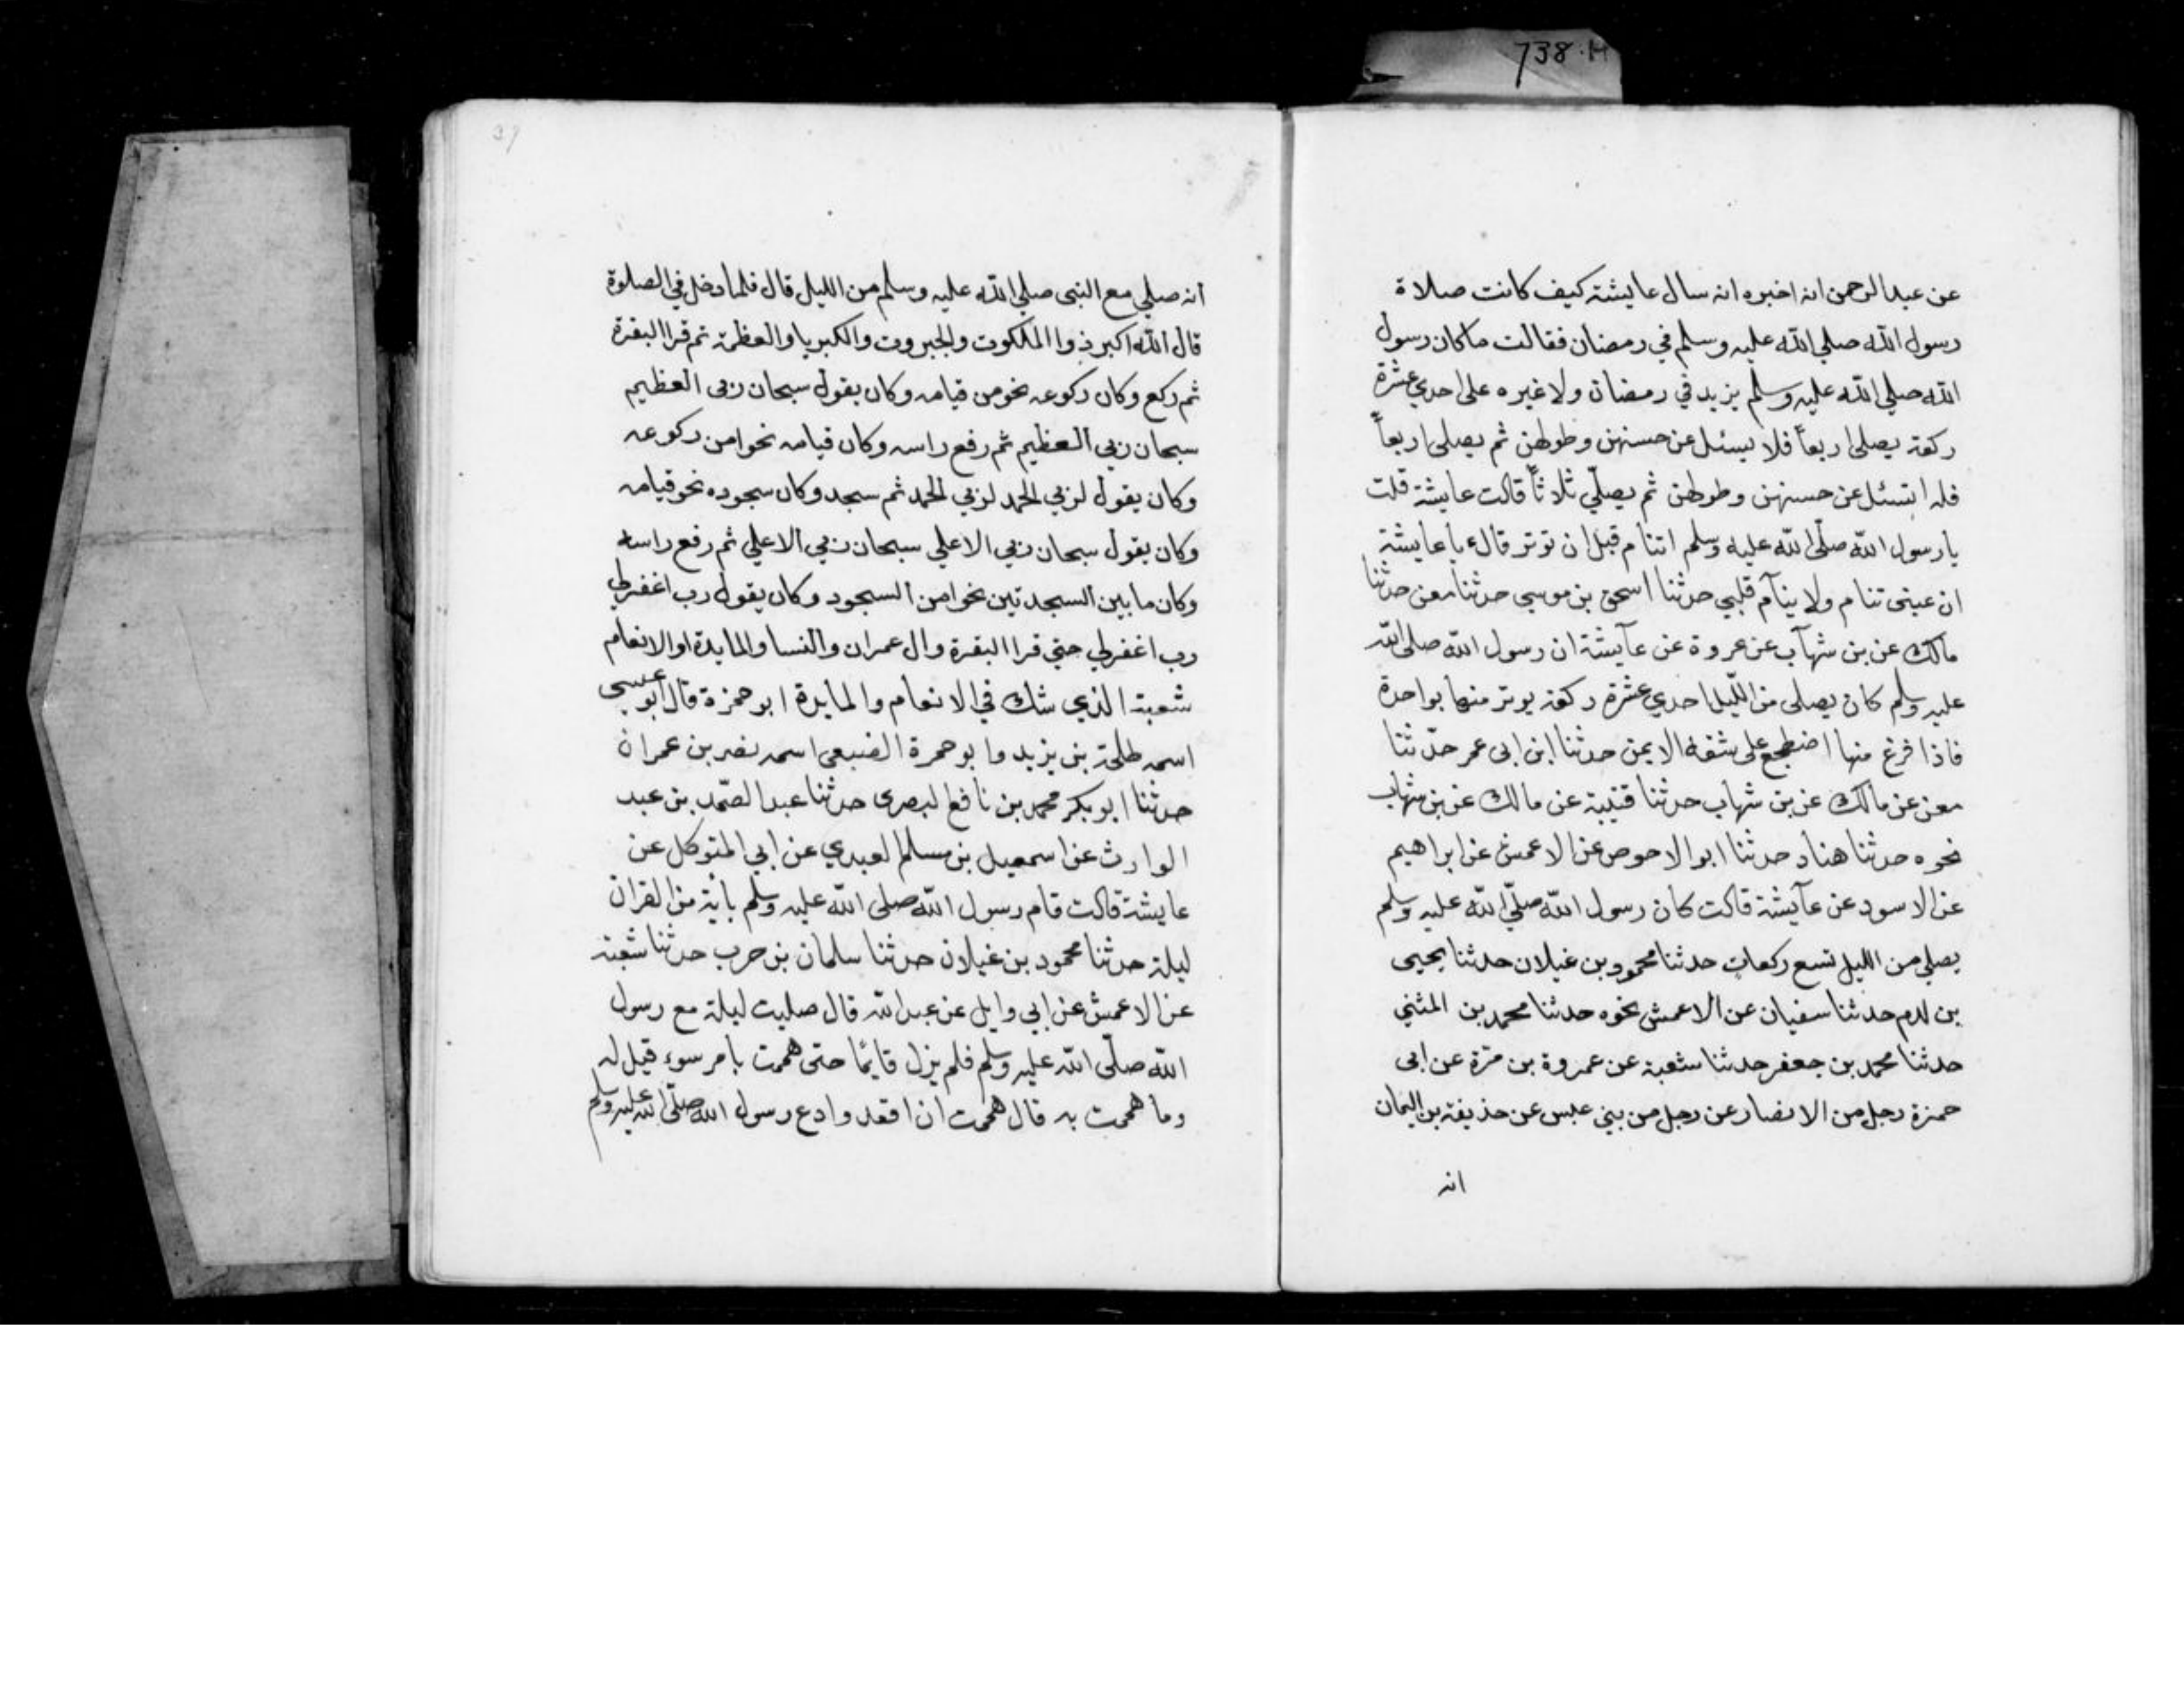 738.H
عن عبد الرحمن انه اخبره انه سال عايشة كيف كانت صلاة
رسول الله صلي الله عليه وسلم في رمضان فقالت ماكان رسول
الله صلي الله عليه وسلم يزيد في رمضان ولا غيره على احدي عشرة
ركعة يصلى اربعاً فلا يسئل عن حسنهن وطولهن ثم يصلى اربعاً
فلا تسئل عن حسنهن وطولهن ثم يصلّي ثلاثاً قالت عايشة قلت
يا رسول الله صلّي الله عليه وسلم اتنام قبل ان توتر قال يا عايشة
ان عينى تنام ولا ينام قلبي حدثنا اسحق بن موسي حدثنا معن حدثنا
مالك عن بن شهاب عن عروة عن عايشة ان رسول الله صلى الله
عليه وسلم كان يصلى من الليل احدي عشرة ركعة يوتر منها بواحدة
فاذا فرغ منها اضطجع على شقه الايمن حدثنا ابن ابى عمر حدّثنا
معن عن مالك عن بن شهاب حدثنا قتيبة عن مالك عن بن شهاب
نحوه حدثنا هناد حدثنا ابو الاحوص عن الاعمش عن ابراهيم
عن الاسود عن عايشة قالت كان رسول الله صلّي الله عليه وسلم
يصلي من الليل تسع ركعات حدثنا محمود بن غيلان حدثنا يحيى
بن ادم حدثنا سفيان عن الاعمش نحوه حدثنا محمد بن المثني
حدثنا محمد بن جعفر حدثنا شعبة عن عمروة بن مرّة عن ابى
حمزة رجل من الانصار عن رجل من بني عبس عن حذيفة بن اليمان
انه
انه صلي مع النبى صلي الله عليه وسلم من الليل قال فلما دخل في الصلوة
قال الله اكبر ذوا الملكوت والجبروت والكبريا والعظمة ثم قرا البقرة
ثم ركع وكان ركوعه نحو من قيامه وكان يقول سبحان ربى العظيم
سبحان ربي العظيم ثم رفع راسه وكان قيامه نحوا من ركوعه
وكان يقول لربي الحمد لربي الحمد ثم سجد وكان سجوده نحو قيامه
وكان يقول سبحان ربي الاعلي سبحان ربي الاعلي ثم رفع راسه
وكان ما بين السجدتين نحوا من السجود وكان يقول رب اغفرلي
رب اغفرلي حتي قرا البقرة وال عمران والنسا والمايدة او الانعام
شعبة الذي شك في الانعام والمايدة ابو حمزة قال ابو عيسى
اسمه طلحة بن يزيد وابو حمرة الضبعى اسمه نصر بن عمران
حدثنا ابو بكر محمد بن نافع البصرى حدثنا عبد الصّمد بن عبد
الوارث عن اسمعيل بن مسلم العبدي عن ابي المتوكل عن
عايشة قالت قام رسول الله صلى الله عليه وسلم باية من القران
ليلة حدثنا محمود بن غيلان حدثنا سلمان بن حرب حدثنا شعبة
عن الاعمش عن ابي وايل عن عبد الله قال صليت ليلة مع رسول
الله صلّى الله عليه وسلم فلم يزل قايمًا حتى هممت بامر سوء قيل له
وما هممت به قال هممت ان اقعد وادع رسول الله صلّى الله عليه وسلم